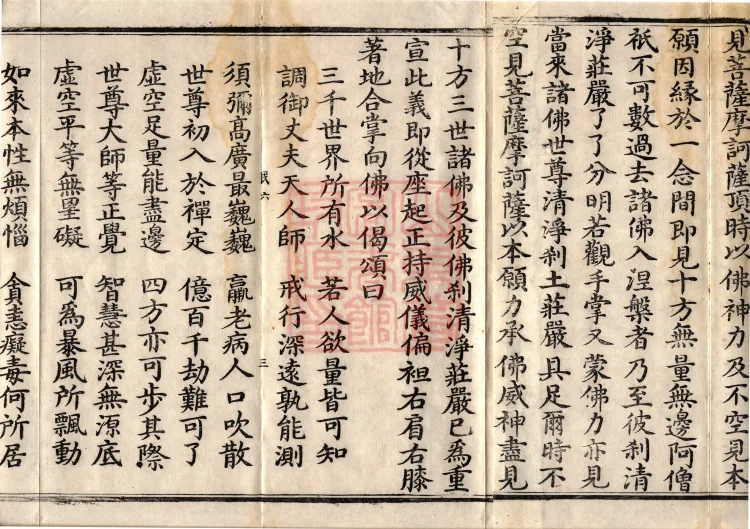 見菩薩摩訶薩頂時以佛神力及不空見本
願因緣於一念間即見十方無量無邊阿僧
祇不可數過去諸佛入涅槃者乃至彼刹清
淨莊嚴了了分明若觀手掌又蒙佛力亦見
當來諸佛世尊清淨刹土莊嚴具足爾時不
空見菩薩摩訶薩以本願力承佛威神盡見
十方三世諸佛及彼佛刹清淨莊嚴已為重
宣此義即從座起正持威儀偏袒右肩右膝
著地合掌向佛以偈頌曰
三千世界所有水 若人欲量皆可知
調御丈夫天人師 戒行深遠孰能測
須彌高廣最巍巍 羸老病人口吹散
世尊初入於禪定 億百千劫難可了
虛空足量能盡邊 四方亦可步其際
世尊大師等正覺 智慧甚深無源底
虛空平等無罣礙 可為暴風所飄動
如來本性無煩惱 貪恚癡毒何所居
三